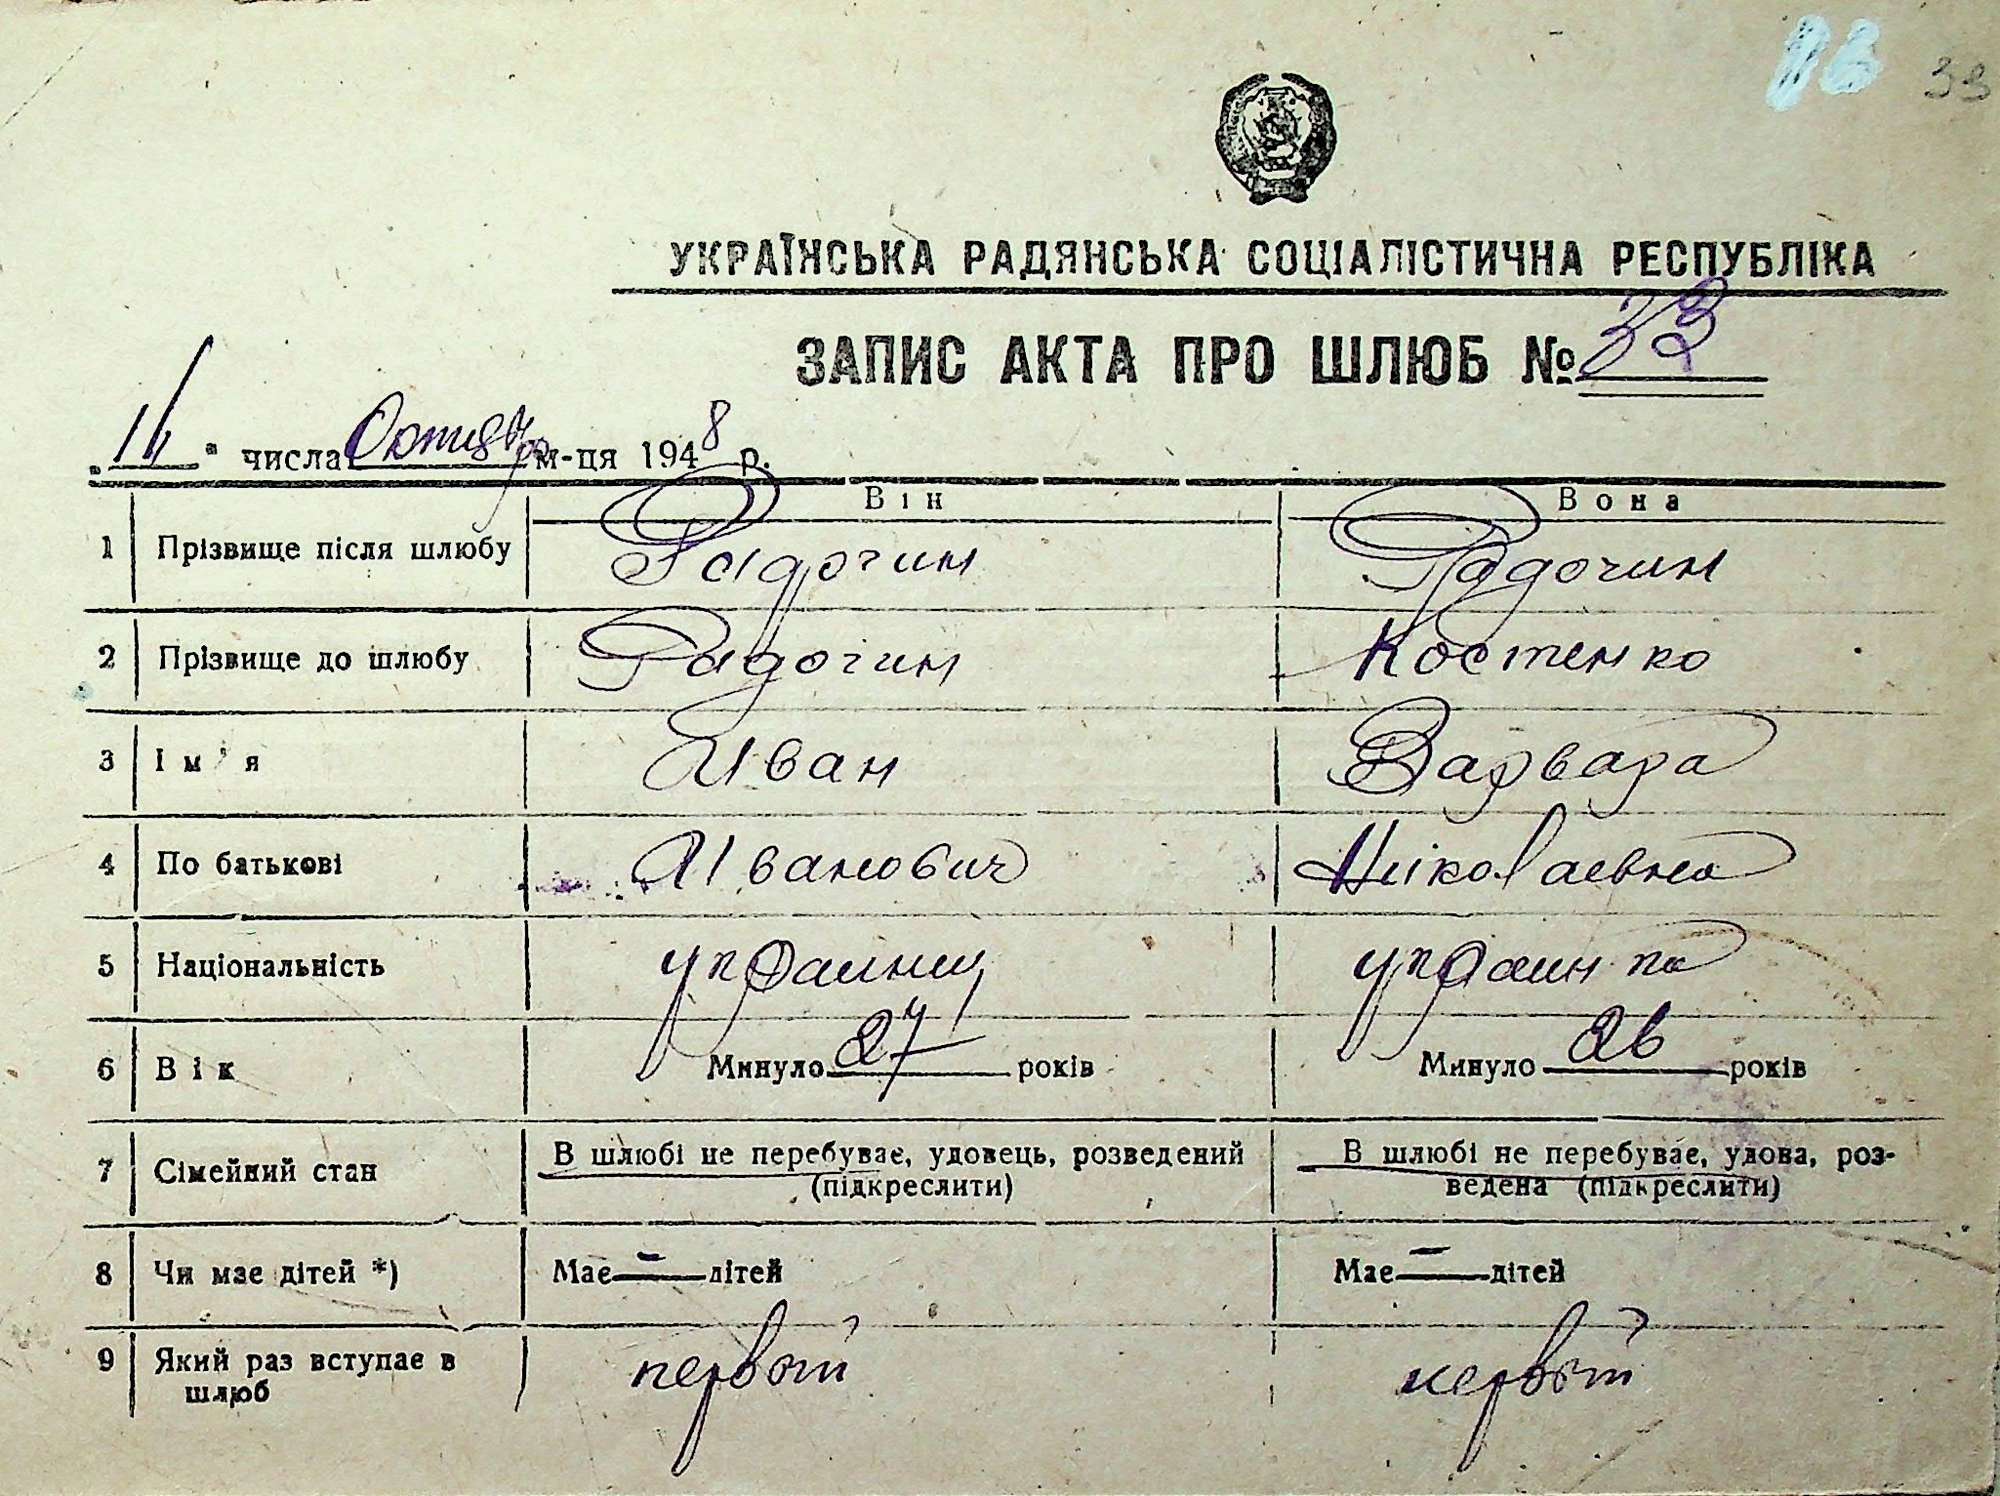 33
УКРАЇНСЬКА РАДЯНСЬКА СОЦІАЛІСТИЧНА РЕСПУБЛІКА
ЗАПИС АКТА ПРО ШЛЮБ № 33
числа Октября м-ця 1948 р.
Він Вона
1 Прізвище після шлюбу Радочин Радочин
2 Прізвище до шлюбу Радочин Костенко
3 Ім'я Иван Варвара
4 По батькові Иванович Николаевна
5 Національність украинец украинка
6 Вік Минуло 27 років Минуло 26 років
7 Сімейний стан В шлюбі не перебуває, удовець, розведений (підкреслити) В шлюбі не перебуває, удова, роз-
ведена (підкреслити)
8 Чи має дітей *) Має — дітей Має — дітей
9 Який раз вступає в шлюб первый первый